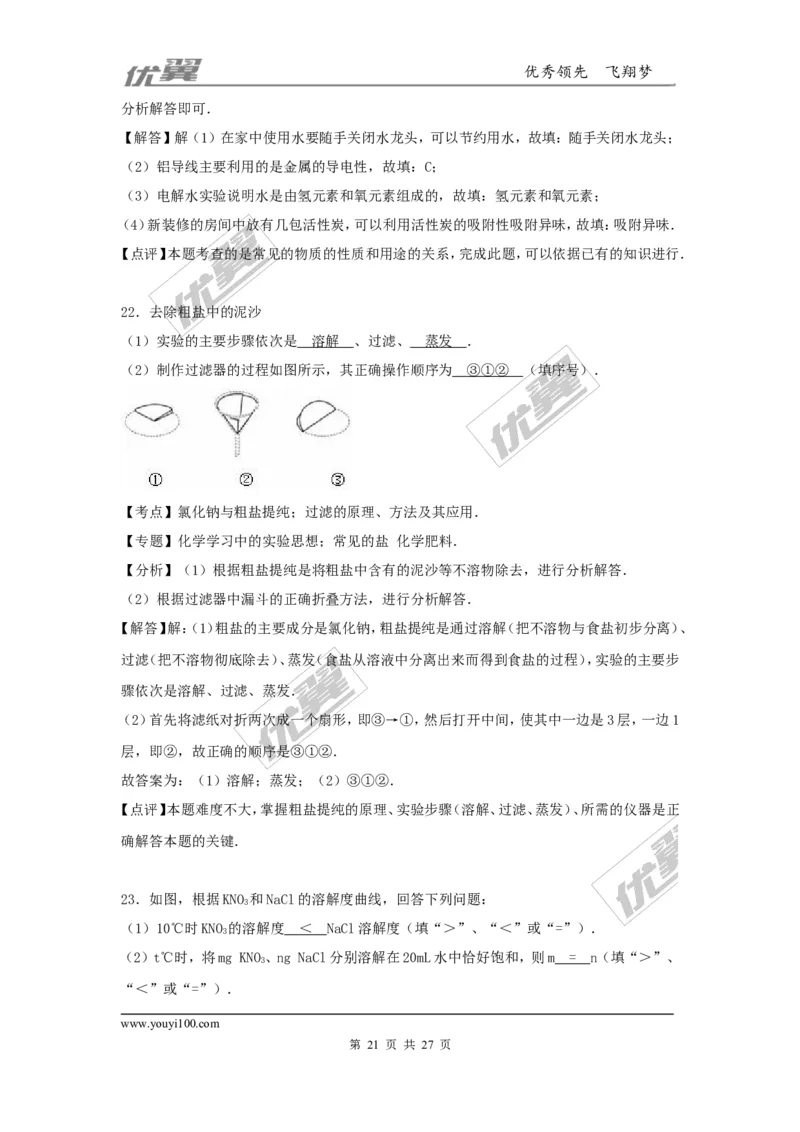 优翼
优秀领先 飞翔梦
分析解答即可．
【解答】解（1）在家中使用水要随手关闭水龙头，可以节约用水，故填：随手关闭水龙头；
（2）铝导线主要利用的是金属的导电性，故填：C；
（3）电解水实验说明水是由氢元素和氧元素组成的，故填：氢元素和氧元素；
（4）新装修的房间中放有几包活性炭，可以利用活性炭的吸附性吸附异味，故填：吸附异味．
【点评】本题考查的是常见的物质的性质和用途的关系，完成此题，可以依据已有的知识进行．
22．去除粗盐中的泥沙
（1）实验的主要步骤依次是 溶解 、过滤、 蒸发 ．
（2）制作过滤器的过程如图所示，其正确操作顺序为 ③①② （填序号）．
① ② ③
【考点】氯化钠与粗盐提纯；过滤的原理、方法及其应用．
【专题】化学学习中的实验思想；常见的盐 化学肥料．
【分析】（1）根据粗盐提纯是将粗盐中含有的泥沙等不溶物除去，进行分析解答．
（2）根据过滤器中漏斗的正确折叠方法，进行分析解答．
【解答】解：（1）粗盐的主要成分是氯化钠，粗盐提纯是通过溶解（把不溶物与食盐初步分离）、
过滤（把不溶物彻底除去）、蒸发（食盐从溶液中分离出来而得到食盐的过程），实验的主要步
骤依次是溶解、过滤、蒸发．
（2）首先将滤纸对折两次成一个扇形，即③→①，然后打开中间，使其中一边是3层，一边1
层，即②，故正确的顺序是③①②．
故答案为：（1）溶解；蒸发；（2）③①②．
【点评】本题难度不大，掌握粗盐提纯的原理、实验步骤（溶解、过滤、蒸发）、所需的仪器是正
确解答本题的关键．
23．如图，根据KNO₃和NaCl的溶解度曲线，回答下列问题：
（1）10℃时KNO₃的溶解度 ＜ NaCl溶解度（填“＞”、“＜”或“=”）．
（2）t℃时，将mg KNO₃、ng NaCl分别溶解在20mL水中恰好饱和，则m = n（填“＞”、
“＜”或“=”）．
www.youyi100.com
第 21 页 共 27 页